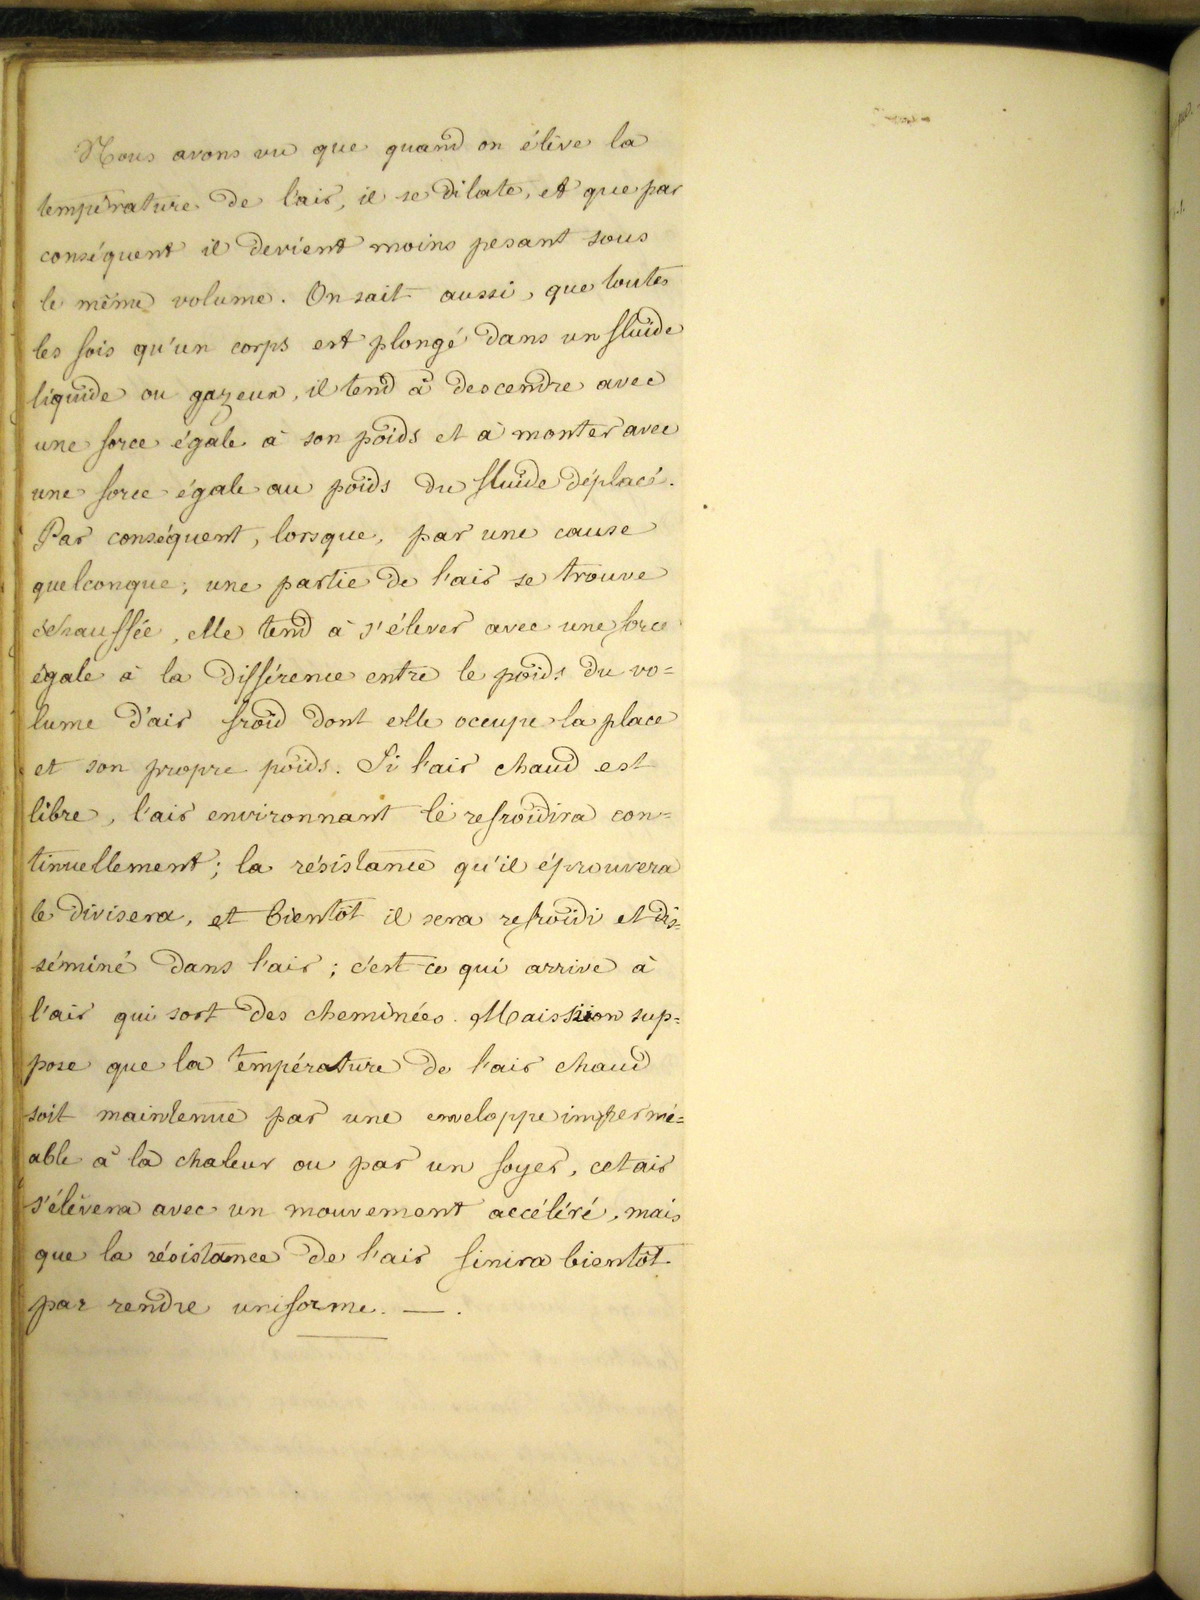 Nous avons vu que quand on élève la
température de l'air, il se dilate, et que par
conséquent il devient moins pesant sous
le même volume. On sait aussi, que toutes
les fois qu'un corps est plongé dans un fluide
liquide ou gazeux, il tend à descendre avec
une force égale à son poids et à monter avec
une force égale au poids du fluide déplacé.
Par conséquent, lorsque, par une cause
quelconque, une partie de l'air se trouve
échauffée, elle tend à s'élever avec une force
égale à la différence entre le poids du vo=
lume d'air froid dont elle occupe la place
et son propre poids. Si l'air chaud est
libre, l'air environnant le refroidira con=
tinuellement; la résistance qu'il éprouvera
le divisera, et bientôt il sera refroidi et dis=
séminé dans l'air; c'est ce qui arrive à
l'air qui sort des cheminées. Mais si on sup=
pose que la température de l'air chaud
soit maintenue par une enveloppe impermé=
able à la chaleur ou par un foyer, cet air
s'élèvera avec un mouvement accéléré, mais
que la résistance de l'air finira bientôt
par rendre uniforme. — .